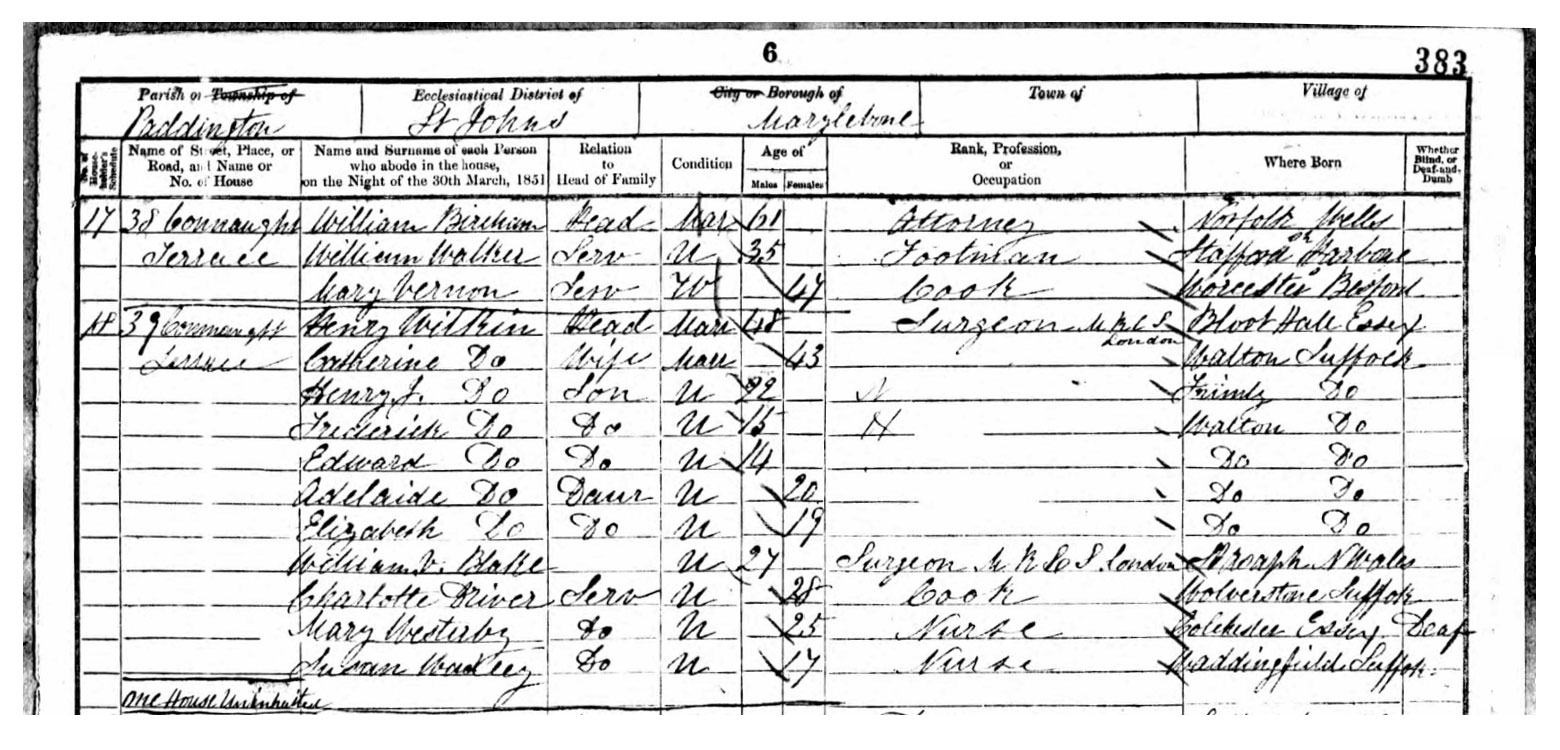 6
383
Parish or Township of Ecclesiastical District of City or Borough of Town of Village of
Paddington St Johns Marylebone
No. of House-holder's Schedule Name of Street, Place, or Road, and Name or No. of House Name and Surname of each Person who abode in the house, on the Night of the 30th March, 1851 Relation to Head of Family Condition Age of Males Females Rank, Profession, or Occupation Where Born Whether Blind, or Deaf-and-Dumb
17 38 Connaught William Bircham Head Mar 61 Attorney Norfolk Wells
Terrace William Walker Serv U 35 Footman Stafford
Mary Vernon Serv W 47 Cook Worcester Besford
18 39 Connaught Henry Wilkin Head Marr 48 Surgeon M R C S London Essex
Terrace Catherine Do Wife Marr 43 Walton Suffolk
Henry J. Do Son U 22 Trimly Do
Frederick Do Do U 15 Walton Do
Edward Do Do U 14 Do Do
Adelaide Do Daur U 20 Do Do
Elizabeth Do Do U 19 Do Do
William V. Blake U 27 Surgeon M R C S London St Asaph N Wales
Charlotte Driver Serv U 28 Cook Wolverstone Suffolk
Mary Westerby Do U 25 Nurse Colchester Essex Deaf
Susan Do U 17 Nurse Waddingfield Suffolk
One House Uninhabited